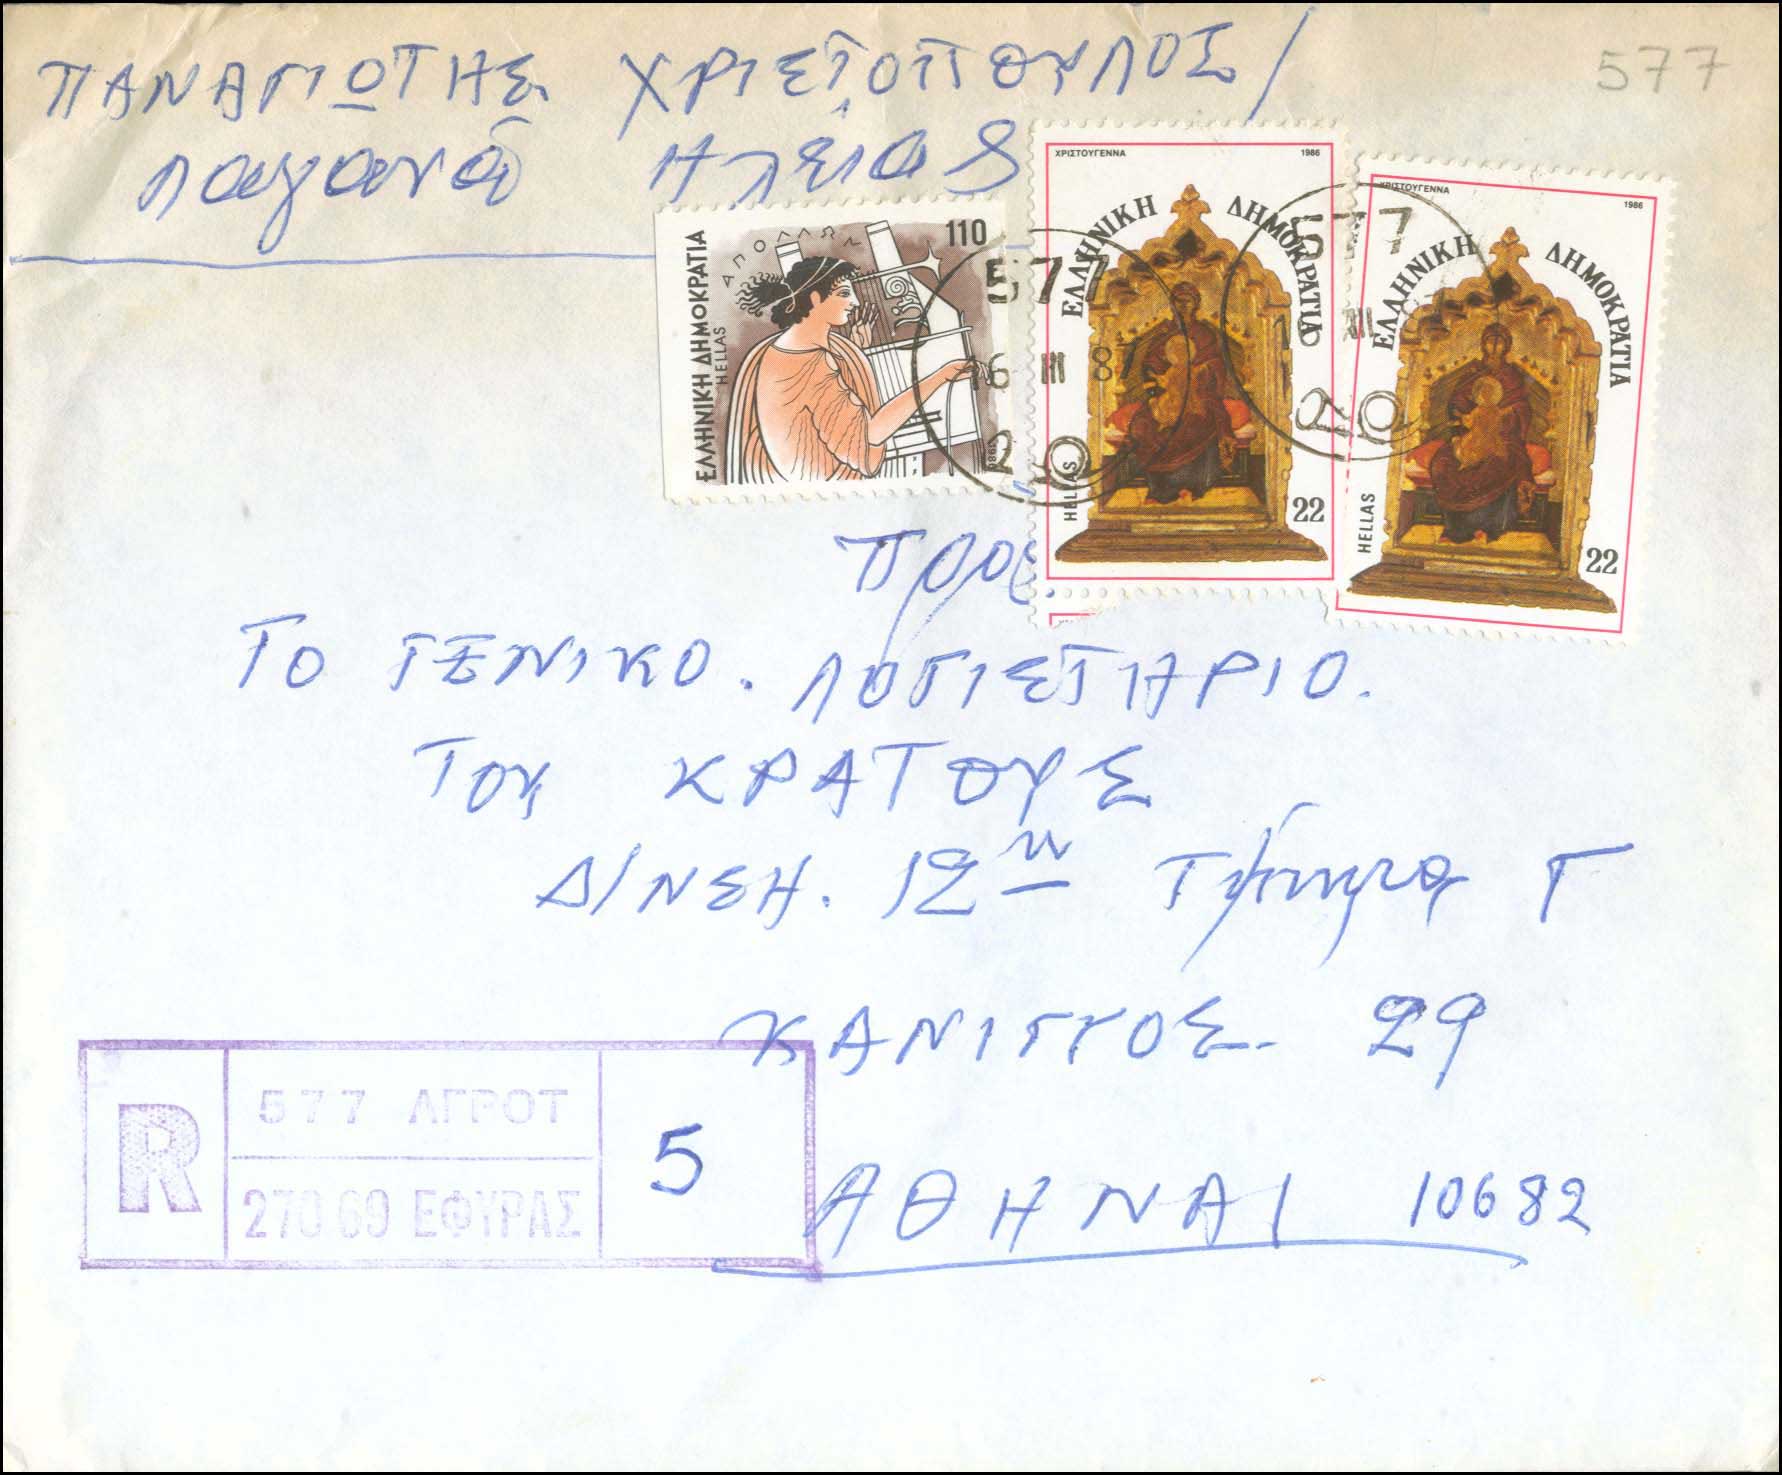 ΠΑΝΑΓΙΩΤΗΣ ΧΡΙΣΤΟΠΟΥΛΟΣ/
577
Λαγανά Ηλείας
ΕΛΛΗΝΙΚΗ ΔΗΜΟΚΡΑΤΙΑ
HELLAS
ΑΠΟΛΛΩΝ
110
1986
ΧΡΙΣΤΟΥΓΕΝΝΑ 1986
ΕΛΛΗΝΙΚΗ ΔΗΜΟΚΡΑΤΙΑ
HELLAS
22
ΧΡΙΣΤΟΥΓΕΝΝΑ 1986
ΕΛΛΗΝΙΚΗ ΔΗΜΟΚΡΑΤΙΑ
HELLAS
22
577
16 III 87
20
577
16 III
20
Προς
ΤΟ ΓΕΝΙΚΟ. ΛΟΓΙΣΤΗΡΙΟ.
Του ΚΡΑΤΟΥΣ
Δ/ΝΣΗ. 12η Τμήμα Γ
ΚΑΝΙΓΓΟΣ. 29
ΑΘΗΝΑΙ 10682
R
577 ΑΓΡΟΤ
270 69 ΕΦΥΡΑΣ
5